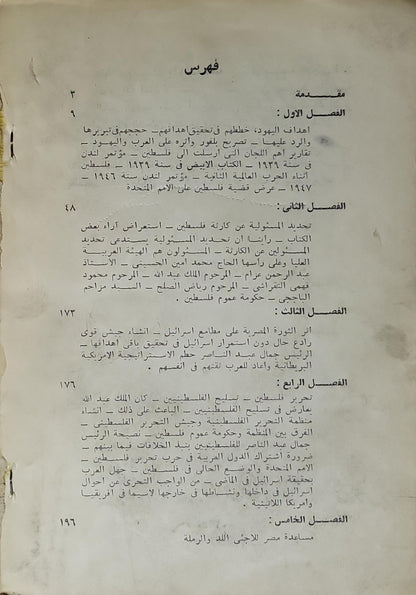 فهرس
مقدمة ٣
الفصل الاول : ٩
اهداف اليهود، خططهم في تحقيق اهدافهم ــ حججهم في تبريرها
والرد عليها ــ تصريح بلفور واثره على العرب واليهود ــ
تقارير اهم اللجان التي ارسلت الى فلسطين ــ مؤتمر لندن
في سنة ١٩٣٩ ــ الكتاب الابيض في سنة ١٩٣٩ ــ فلسطين
أثناء الحرب العالمية الثانية ــ مؤتمر لندن سنة ١٩٤٦ ــ
١٩٤٧ ــ عرض قضية فلسطين على الامم المتحدة
الفصل الثاني : ٤٨
تحديد المسئولية عن كارثة فلسطين ــ استعراض آراء بعض
الكتاب ــ رأينا ان تحديد المسئولية يستدعى تحديد
المسئولين عن الكارثة ــ المسئولون هم الهيئة العربية
العليا وعلى رأسها الحاج محمد امين الحسيني ــ الأستاذ
عبد الرحمن عزام ــ المرحوم الملك عبد الله ــ المرحوم محمود
فهمى النقراشي ــ المرحوم رياض الصلح ــ السيد مزاحم
الباججي ــ حكومة عموم فلسطين .
الفصل الثالث : ١٧٣
اثر الثورة المصرية على مطامع اسرائيل ــ انشاء جيش قوى
رادع حال دون استمرار اسرائيل في تحقيق باقي اهدافها ــ
الرئيس جمال عبد الناصر حطم الاستراتيجية الامريكية
البريطانية واعاد للعرب ثقتهم في انفسهم .
الفصل الرابع : ١٧٦
تحرير فلسطين ــ تسليح الفلسطينيين ــ كان الملك عبد الله
يعارض في تسليح الفلسطينيين ــ الباعث على ذلك ــ انشاء
منظمة التحرير الفلسطينية وجيش التحرير الفلسطيني ــ
الفرق بين المنظمة وحكومة عموم فلسطين ــ نصيحة الرئيس
جمال عبد الناصر للفلسطينيين بنبذ الخلافات فيما بينهم ــ
ضرورة اشتراك الدول العربية في حرب تحرير فلسطين ــ
الامم المتحدة والوضع الحالى في فلسطين ــ جهل العرب
بحقيقة اسرائيل في الماضي ــ من الواجب التحرى عن احوال
اسرائيل في داخلها ونشاطها في خارجها لاسيما في افريقيا
وامريكا اللاتينية .
الفصل الخامس : ١٩٦
مساعدة مصر للاجئى اللد والرملة